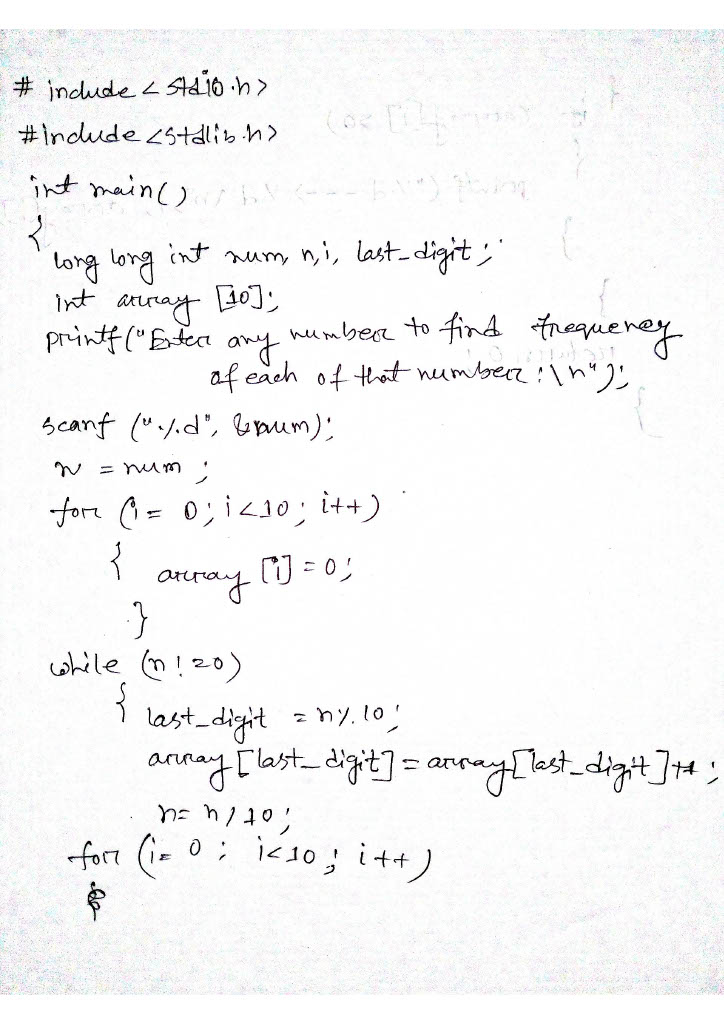 # include < stdio.h>
#include <stdlib.h>
int main()
{
long long int num, n,i, last_digit;
int array [10];
printf("Enter any number to find frequency
of each of that number : \n");
scanf ("%d", &num);
n = num ;
for (i = 0; i<10; i++)
{ array [i] = 0;
}
while (n != 0)
{ last_digit = n%10;
array [last_digit] = array[last_digit]+1;
n= n/10;
for (i= 0 ; i<10; i++)